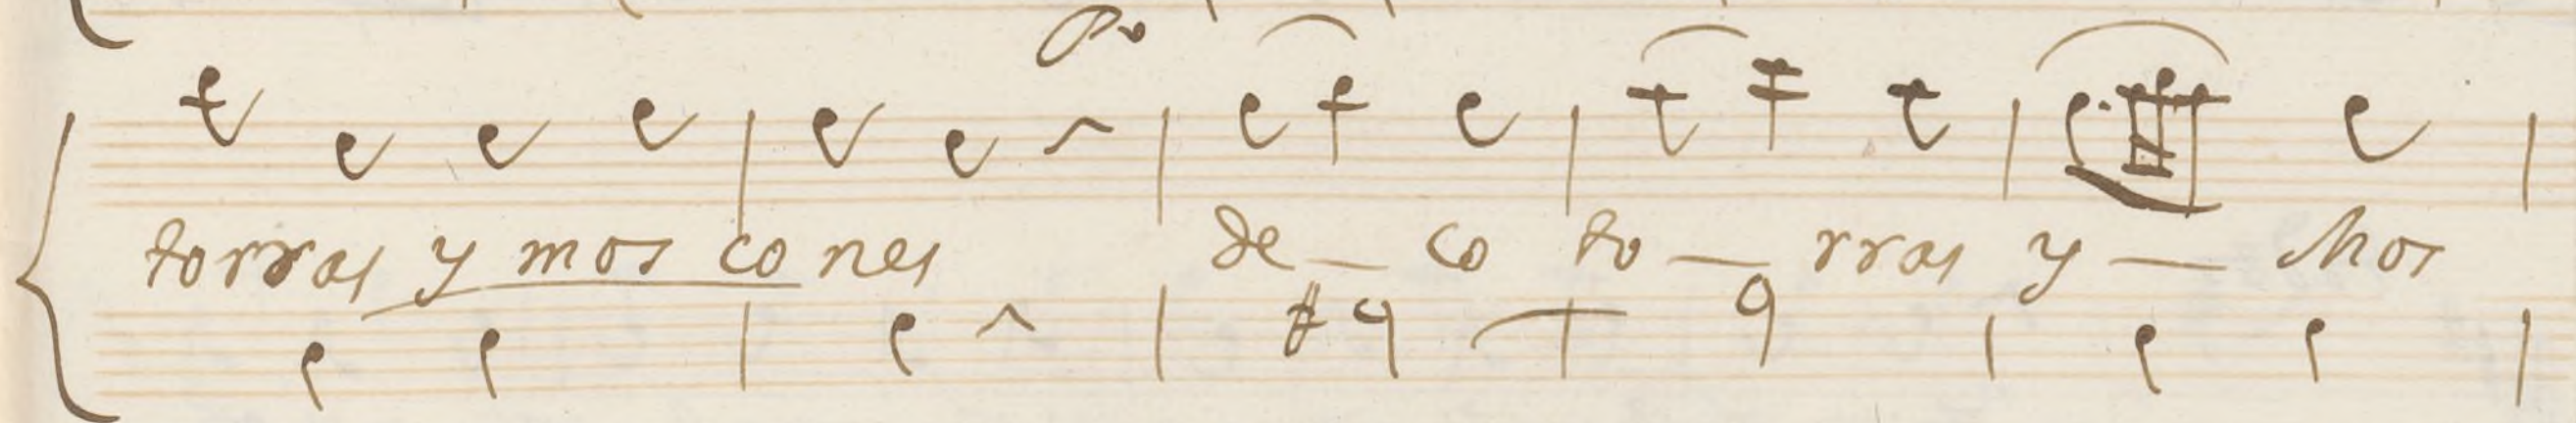 Po
torras y mos co nes de_ co to_ rras y_ Mos